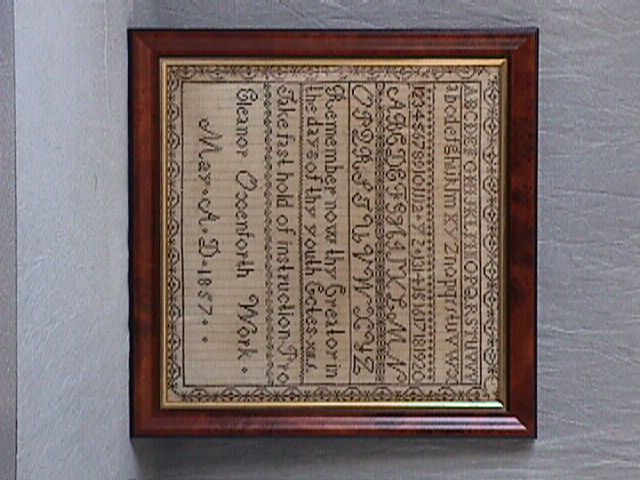 ABCDEFGHIJKLMNOPQRSTUVW
abcdefghijklm XYZ nopqrstuvw
1 2 3 4 5 6 7 8 9 10 11 12 13 14 15 16 17 18 19 20
A B C D E F G H I J K L M N
O P Q R S T U V W X Y Z
Remember now thy Creator in
the days of thy youth Ecles·xii.1.
Take fast hold of instruction. Pro
Eleanor Oxenforth Work
May·A·D·1857